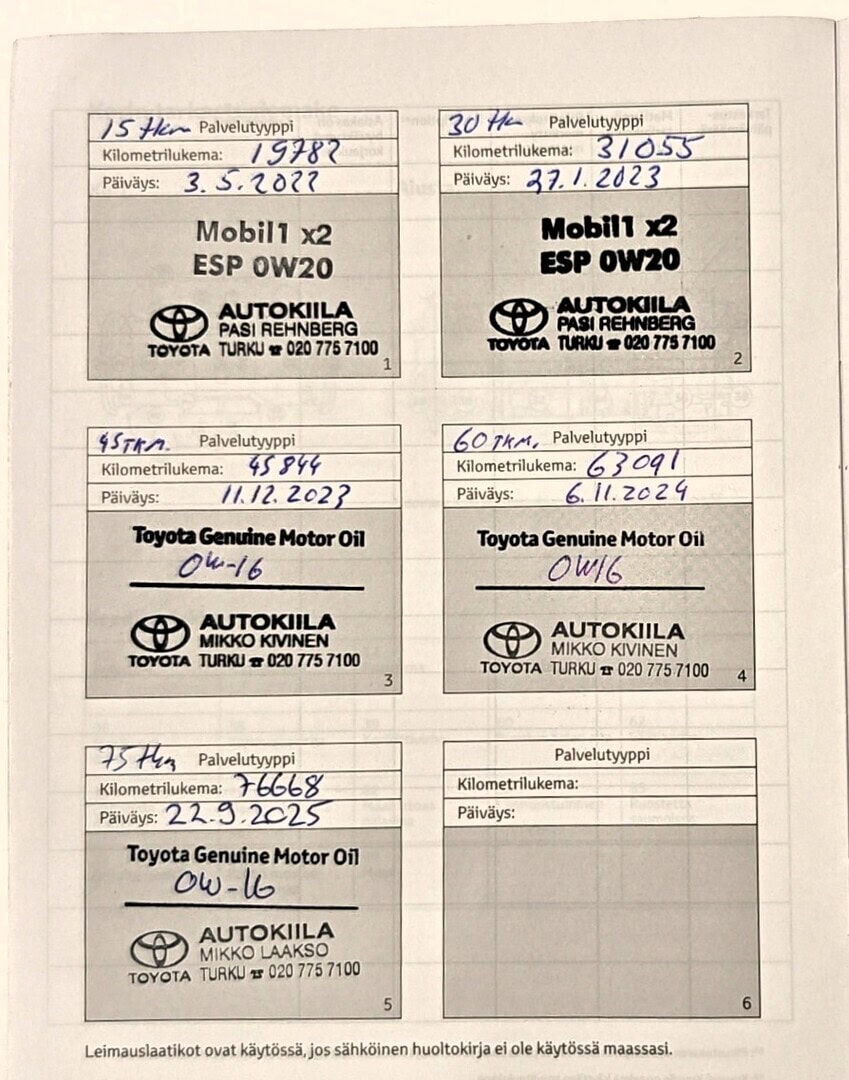 15 tkm Palvelutyyppi
Kilometrilukema: 19782
Päiväys: 3.5.2022
Mobil1 x2
ESP 0W20
AUTOKIILA
PASI REHNBERG
TOYOTA TURKU ☎ 020 775 7100
1
30 tkm Palvelutyyppi
Kilometrilukema: 31055
Päiväys: 27.1.2023
Mobil1 x2
ESP 0W20
AUTOKIILA
PASI REHNBERG
TOYOTA TURKU ☎ 020 775 7100
2
45TKM. Palvelutyyppi
Kilometrilukema: 45844
Päiväys: 11.12.2023
Toyota Genuine Motor Oil
0W-16
AUTOKIILA
MIKKO KIVINEN
TOYOTA TURKU ☎ 020 775 7100
3
60TKM. Palvelutyyppi
Kilometrilukema: 63091
Päiväys: 6.11.2024
Toyota Genuine Motor Oil
0W16
AUTOKIILA
MIKKO KIVINEN
TOYOTA TURKU ☎ 020 775 7100
4
75 tkm Palvelutyyppi
Kilometrilukema: 76668
Päiväys: 22.9.2025
Toyota Genuine Motor Oil
0W-16
AUTOKIILA
MIKKO LAAKSO
TOYOTA TURKU ☎ 020 775 7100
5
Palvelutyyppi
Kilometrilukema:
Päiväys:
6
Leimauslaatikot ovat käytössä, jos sähköinen huoltokirja ei ole käytössä maassasi.